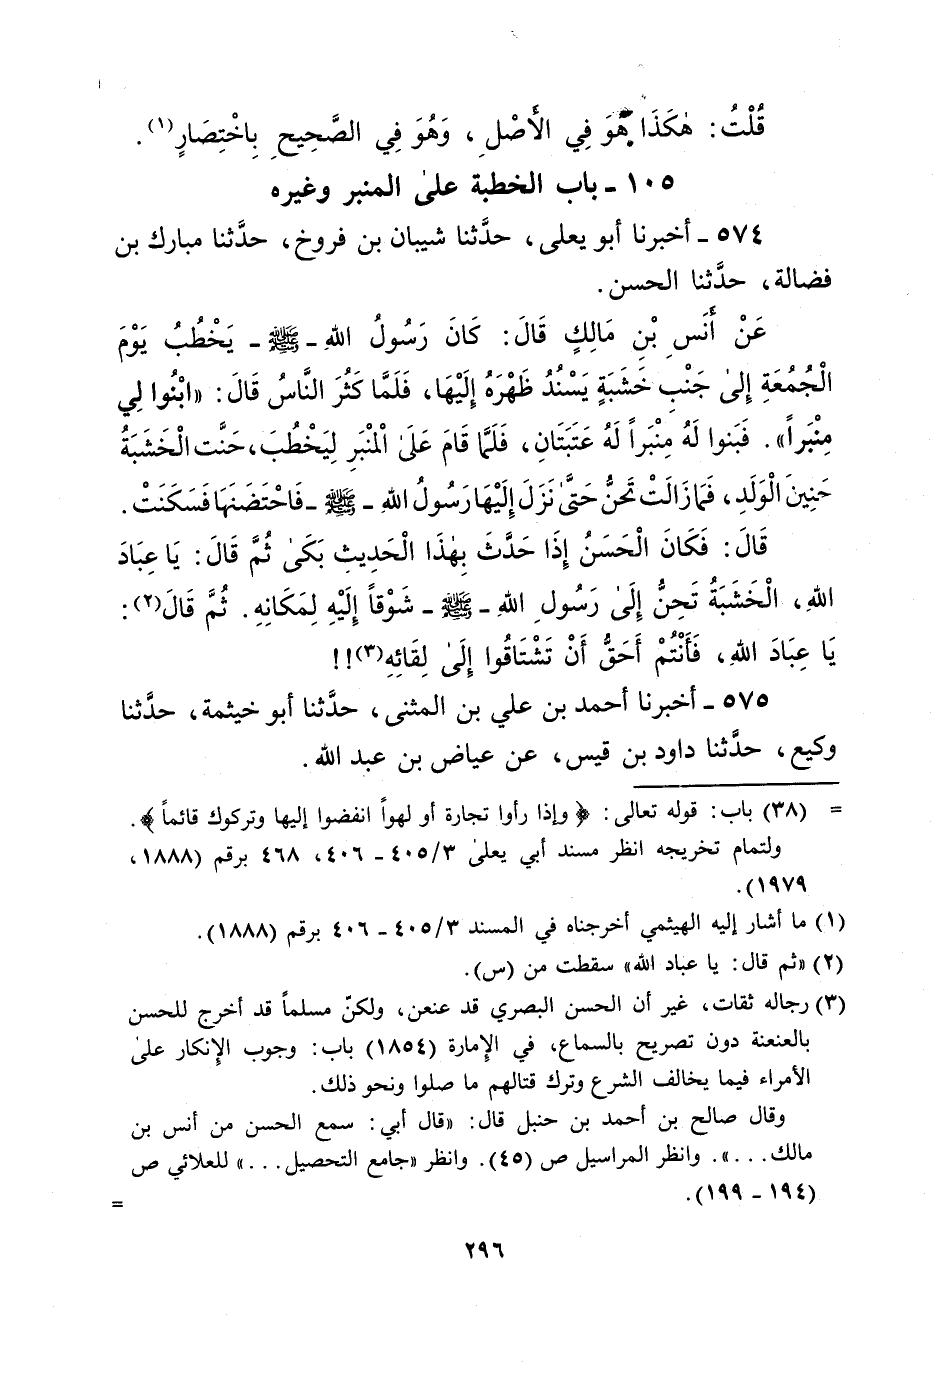 قُلْتُ: هٰكَذَا هُوَ فِي الأَصْلِ، وَهُوَ فِي الصَّحِيحِ بِاخْتِصَارٍ(١).
١٠٥ ـ باب الخطبة علىٰ المنبر وغيره
٥٧٤ ـ أخبرنا أبو يعلى، حدَّثنا شيبان بن فروخ، حدَّثنا مبارك بن
فضالة، حدَّثنا الحسن.
عَنْ أَنَسِ بْنِ مَالِكٍ قَالَ: كَانَ رَسُولُ اللهِ ـ ﷺ ـ يَخْطُبُ يَوْمَ
الْجُمُعَةِ إِلىٰ جَنْبِ خَشَبَةٍ يَسْنُدُ ظَهْرَهُ إِلَيْهَا، فَلَمَّا كَثُرَ النَّاسُ قَالَ: «ابْنُوا لِي
مِنْبَراً». فَبَنوا لَهُ مِنْبَراً لَهُ عَتَبَتَانِ، فَلَمَّا قَامَ عَلَىٰ الْمِنْبَرِ لِيَخْطُبَ، حَنَّت الْخَشَبَةُ
حَنِينَ الْوَلَدِ، فَمَا زَالَتْ تَحِنُّ حَتَّىٰ نَزَلَ إِلَيْهَا رَسُولُ اللهِ ـ ﷺ ـ فَاحْتَضَنَهَا فَسَكَنَتْ.
قَالَ: فَكَانَ الْحَسَنُ إِذَا حَدَّثَ بِهٰذَا الْحَدِيثِ بَكَىٰ ثُمَّ قَالَ: يَا عِبَادَ
اللهِ، الْخَشَبَةُ تَحِنُّ إِلَىٰ رَسُولِ اللهِ ـ ﷺ ـ شَوْقاً إِلَيْهِ لِمَكَانِهِ. ثُمَّ قَالَ(٢):
يَا عِبَادَ اللهِ، فَأَنْتُمْ أَحَقُّ أَنْ تَشْتَاقُوا إِلَىٰ لِقَائِهِ(٣)!!
٥٧٥ ـ أخبرنا أحمد بن علي بن المثنى، حدَّثنا أبو خيثمة، حدَّثنا
وكيع، حدَّثنا داود بن قيس، عن عياض بن عبد الله.
= (٣٨) باب: قوله تعالى: ﴿وإذا رأوا تجارة أو لهواً انفضوا إليها وتركوك قائماً﴾.
ولتمام تخريجه انظر مسند أبي يعلىٰ ٤٠٥/٣ ـ ٤٠٦، ٤٦٨ برقم (١٨٨٨،
١٩٧٩).
(١) ما أشار إليه الهيثمي أخرجناه في المسند ٤٠٥/٣ ـ ٤٠٦ برقم (١٨٨٨).
(٢) «ثم قال: يا عباد الله» سقطت من (س).
(٣) رجاله ثقات، غير أن الحسن البصري قد عنعن، ولكنّ مسلماً قد أخرج للحسن
بالعنعنة دون تصريح بالسماع، في الإمارة (١٨٥٤) باب: وجوب الإنكار علىٰ
الأمراء فيما يخالف الشرع وترك قتالهم ما صلوا ونحو ذلك.
وقال صالح بن أحمد بن حنبل قال: «قال أبي: سمع الحسن من أنس بن
مالك...». وانظر المراسيل ص (٤٥). وانظر «جامع التحصيل...» للعلائي ص
(١٩٤ ـ ١٩٩).
=
٢٩٦